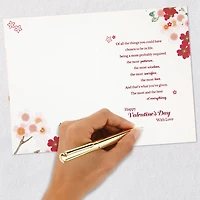 Of all the things you could have
chosen to be in life,
being a most probably required
the most patience,
the most wisdom,
the most sacrifice,
the most love.
And that's what you've given.
The most and the best
of everything.
Happy
Valentine's Day
With Love